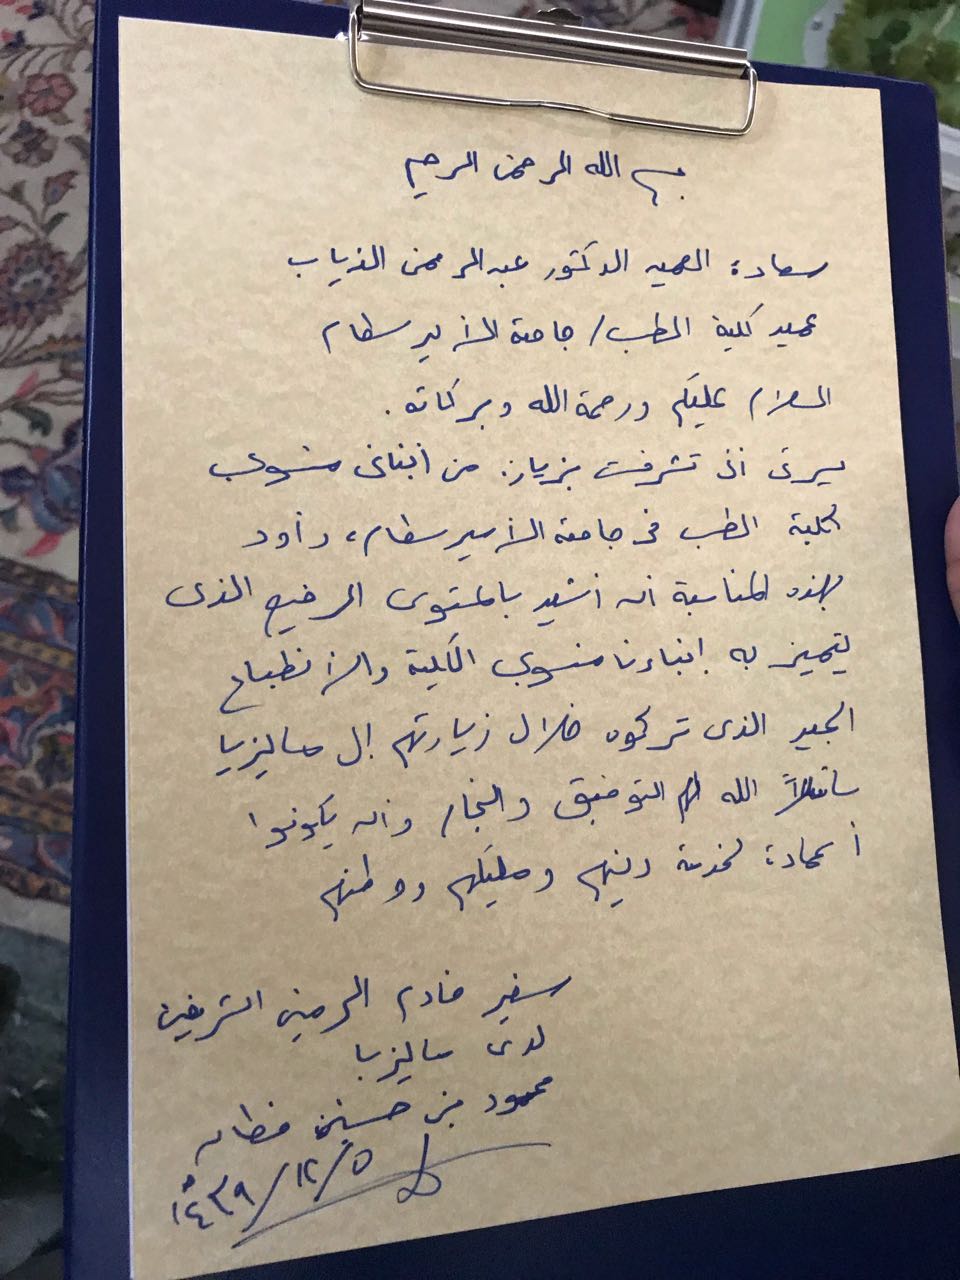 بسم الله الرحمن الرحيم
سعادة العميد الدكتور عبدالرحمن الذياب
عميد كلية الطب / جامعة الأمير سطام
السلام عليكم ورحمة الله وبركاته .
يسرني أني تشرفت بزيارة من أبنائي منسوبي
كلية الطب في جامعة الأمير سطام، وأود
بهذه المناسبة أن أشيد بالمستوى الرفيع الذي
يتميز به أبناءنا منسوبي الكلية والانطباع
الجيد الذي تركوه خلال زيارتهم إلى ماليزيا
سائلاً الله لهم التوفيق والنجاح وأن يكونوا
أعمدة لخدمة دينهم ومليكهم ووطنهم
سفير خادم الحرمين الشريفين
لدى ماليزيا
محمود بن حسين قطان
١٤٣٩/١٢/٥ هـ